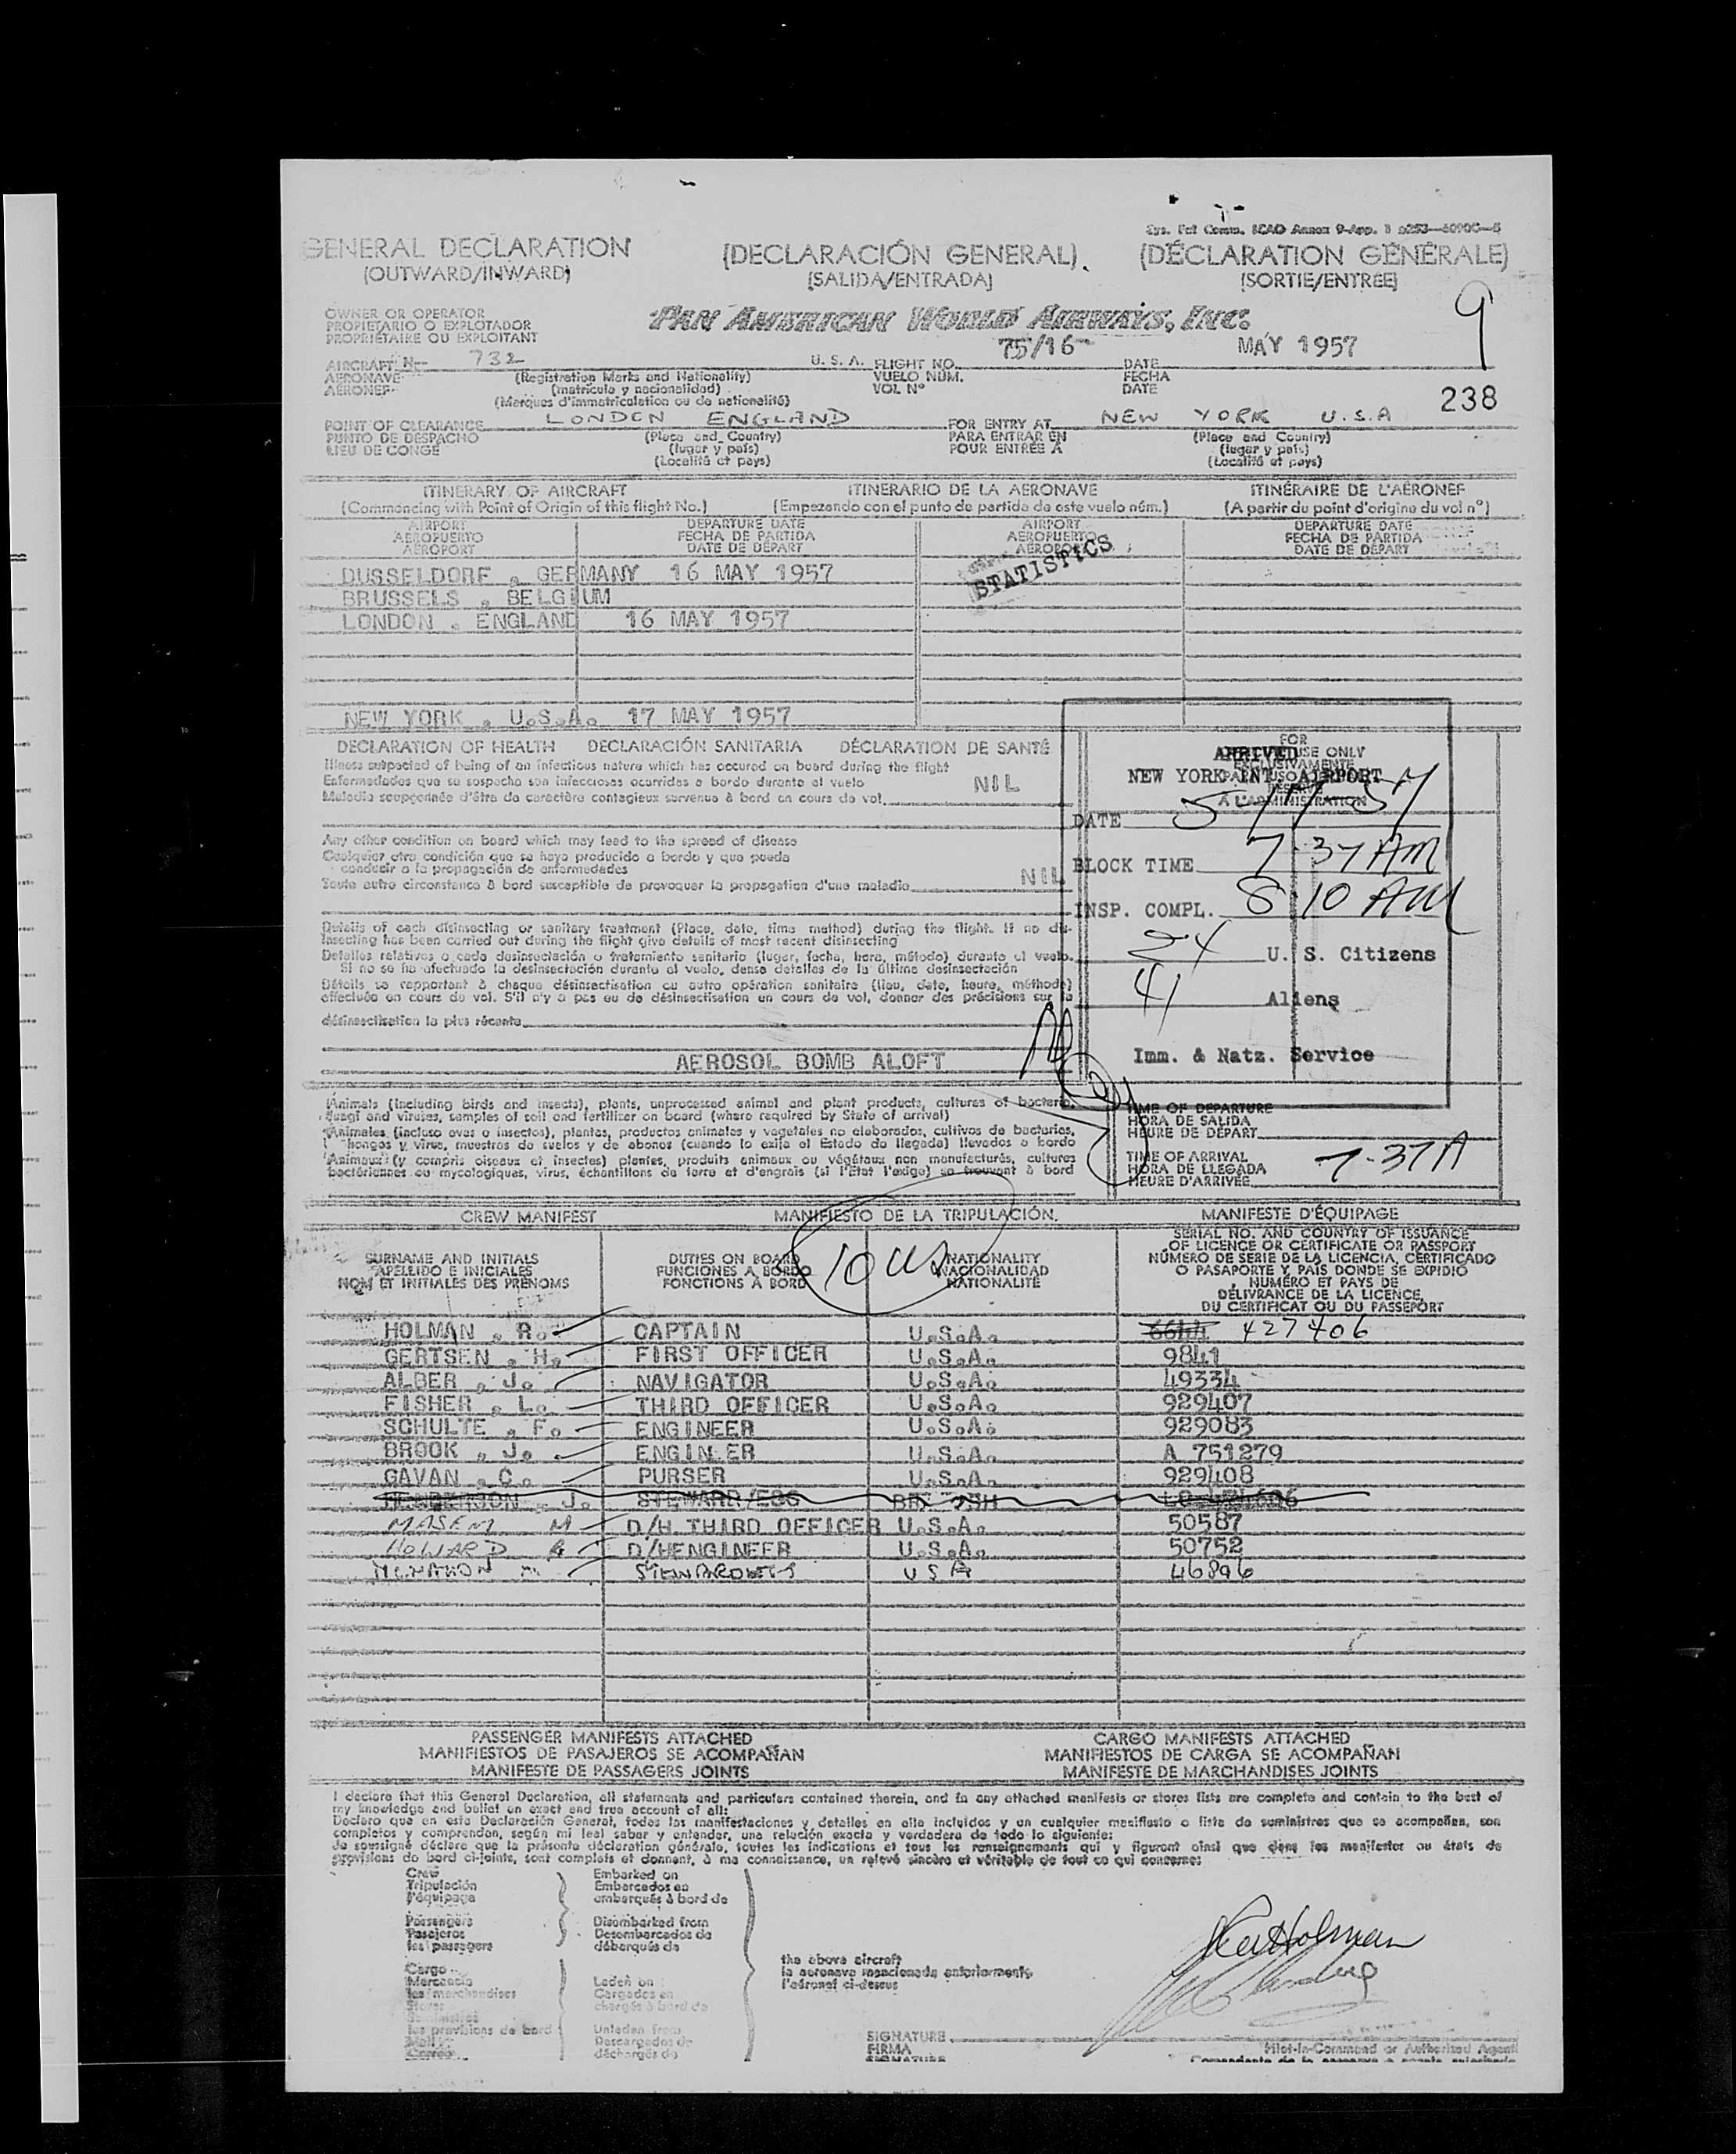 Sys. Fet Comm. ICAO Annex 9-App. 1
GENERAL DECLARATION (DECLARACIÓN GENERAL) (DÉCLARATION GÉNÉRALE)
(OUTWARD/INWARD) (SALIDA/ENTRADA) (SORTIE/ENTRÉE)
9
OWNER OR OPERATOR
PROPIETARIO O EXPLOTADOR
PROPRIÉTAIRE OU EXPLOITANT
PAN AMERICAN WORLD AIRWAYS, INC.
AIRCRAFT N- 732 U. S. A. FLIGHT NO. 75/16 DATE MAY 1957
AERONAVE (Registration Marks and Nationality) VUELO NÚM. FECHA
AÉRONEF (matrícula y nacionalidad) VOL Nº DATE
(Marques d'immatriculation ou de nationalité)
238
POINT OF CLEARANCE LONDON ENGLAND FOR ENTRY AT NEW YORK U.S.A
PUNTO DE DESPACHO (Place and Country) PARA ENTRAR EN (Place and Country)
LIEU DE CONGÉ (lugar y país) POUR ENTRÉE À (lugar y país)
(Localité et pays) (Localité et pays)
ITINERARY OF AIRCRAFT ITINERARIO DE LA AERONAVE ITINÉRAIRE DE L'AÉRONEF
(Commencing with Point of Origin of this flight No.) (Empezando con el punto de partida de este vuelo núm.) (A partir du point d'origine du vol nº)
AIRPORT DEPARTURE DATE AIRPORT DEPARTURE DATE
AEROPUERTO FECHA DE PARTIDA AEROPUERTO FECHA DE PARTIDA
AÉROPORT DATE DE DÉPART AÉROPORT DATE DE DÉPART
STATISTICS
DUSSELDORF , GERMANY 16 MAY 1957
BRUSSELS , BELGIUM
LONDON , ENGLAND 16 MAY 1957
NEW YORK , U.S.A. 17 MAY 1957
DECLARATION OF HEALTH DECLARACIÓN SANITARIA DÉCLARATION DE SANTÉ
Illness suspected of being of an infectious nature which has occured on board during the flight
Enfermedades que se sospecha son infecciosas ocurridas a bordo durante el vuelo NIL
Maladie soupçonnée d'être de caractère contagieux survenue à bord en cours de vol.
Any other condition on board which may lead to the spread of disease
Cualquier otra condición que se haya producido a bordo y que pueda
conducir a la propagación de enfermedades
Toute autre circonstance à bord susceptible de provoquer la propagation d'une maladie NIL
Details of each disinsecting or sanitary treatment (Place, date, time method) during the flight. If no dis-
insecting has been carried out during the flight give details of most recent disinsecting
Detalles relativos a cada desinsectación o tratamiento sanitario (lugar, fecha, hora, método) durante el vuelo.
Si no se ha efectuado la desinsectación durante el vuelo, dense detalles de la última desinsectación
Détails se rapportant à chaque désinsectisation ou autre opération sanitaire (lieu, date, heure, méthode)
effectuée en cours de vol. S'il n'y a pas eu de désinsectisation en cours de vol, donner des précisions sur la
désinsectisation la plus récente
AEROSOL BOMB ALOFT
FOR
OFFICIAL USE ONLY
EXCLUSIVAMENTE
PARA USO
RÉSERVÉ
À L'ADMINISTRATION
ARRIVED
NEW YORK INT. AIRPORT
DATE 5-17-57
BLOCK TIME 7-37 AM
INSP. COMPL. 8:10 AM
24 U. S. Citizens
41 Aliens
Imm. & Natz. Service
Animals (including birds and insects), plants, unprocessed animal and plant products, cultures of bacteria,
fungi and viruses, samples of soil and fertilizer on board (where required by State of arrival)
Animales (incluso aves o insectos), plantas, productos animales y vegetales no elaborados, cultivos de bacterias,
hongos y virus, muestras de suelos y de abonos (cuando lo exija el Estado de llegada) llevados a bordo
Animaux (y compris oiseaux et insectes) plantes, produits animaux ou végétaux non manufacturés, cultures
bactériennes ou mycologiques, virus, échantillons de terre et d'engrais (si l'État l'exige) se trouvant à bord
TIME OF DEPARTURE
HORA DE SALIDA
HEURE DE DÉPART
TIME OF ARRIVAL
HORA DE LLEGADA 7-37A
HEURE D'ARRIVÉE
CREW MANIFEST MANIFIESTO DE LA TRIPULACIÓN. MANIFESTE D'ÉQUIPAGE
SURNAME AND INITIALS
APELLIDO E INICIALES
NOM ET INITIALES DES PRÉNOMS
DUTIES ON BOARD
FUNCIONES A BORDO
FONCTIONS À BORD
10 US
NATIONALITY
NACIONALIDAD
NATIONALITÉ
SERIAL NO. AND COUNTRY OF ISSUANCE
OF LICENCE OR CERTIFICATE OR PASSPORT
NÚMERO DE SERIE DE LA LICENCIA, CERTIFICADO
O PASAPORTE Y PAÍS DONDE SE EXPIDIÓ
NUMÉRO ET PAYS DE
DÉLIVRANCE DE LA LICENCE,
DU CERTIFICAT OU DU PASSEPORT
HOLMAN , R. CAPTAIN U.S.A. 6644 427406
GERTSEN , H. FIRST OFFICER U.S.A. 9841
ALBER , J. NAVIGATOR U.S.A. 49334
FISHER , L. THIRD OFFICER U.S.A. 929407
SCHULTE , F. ENGINEER U.S.A. 929083
BROOK , J. ENGINEER U.S.A. A 751279
GAVAN , C. PURSER U.S.A. 929408
HENDERSON , J. STEWARD/ESS BRITISH
MASEM M D/H THIRD OFFICER U.S.A. 50587
HOWARD D/HENGINEER U.S.A. 50752
McMAHON M STEWARDESS USA 46896
PASSENGER MANIFESTS ATTACHED CARGO MANIFESTS ATTACHED
MANIFIESTOS DE PASAJEROS SE ACOMPAÑAN MANIFIESTOS DE CARGA SE ACOMPAÑAN
MANIFESTE DE PASSAGERS JOINTS MANIFESTE DE MARCHANDISES JOINTS
I declare that this General Declaration, all statements and particulars contained therein, and in any attached manifests or stores lists are complete and contain to the best of
my knowledge and belief an exact and true account of all:
Declaro que en esta Declaración General, todas las manifestaciones y detalles en ella incluidos y en cualquier manifiesto o lista de suministros que se acompañen, son
completos y comprenden, según mi leal saber y entender, una relación exacta y verdadera de todo lo siguiente:
Je soussigné déclare que la présente déclaration générale, toutes les indications et tous les renseignements qui y figurent ainsi que dans les manifestes ou états de
provisions de bord ci-joints, sont complets et donnent, à ma connaissance, un relevé sincère et véritable de tout ce qui concerne:
Crew
Tripulación
l'équipage
Passengers
Pasajeros
les passagers
Cargo
Mercancía
les marchandises
Stores
Suministros
les provisions de bord
Mail
Correo
Embarked on
Embarcados en
embarqués à bord de
Disembarked from
Desembarcados de
débarqués de
Laden on
Cargados en
chargés à bord de
Unladen from
Descargados de
déchargés de
the above aircraft
la aeronave mencionada anteriormente
l'aéronef ci-dessus
Holman
SIGNATURE
FIRMA
SIGNATURE
Pilot-in-Command or Authorized Agent